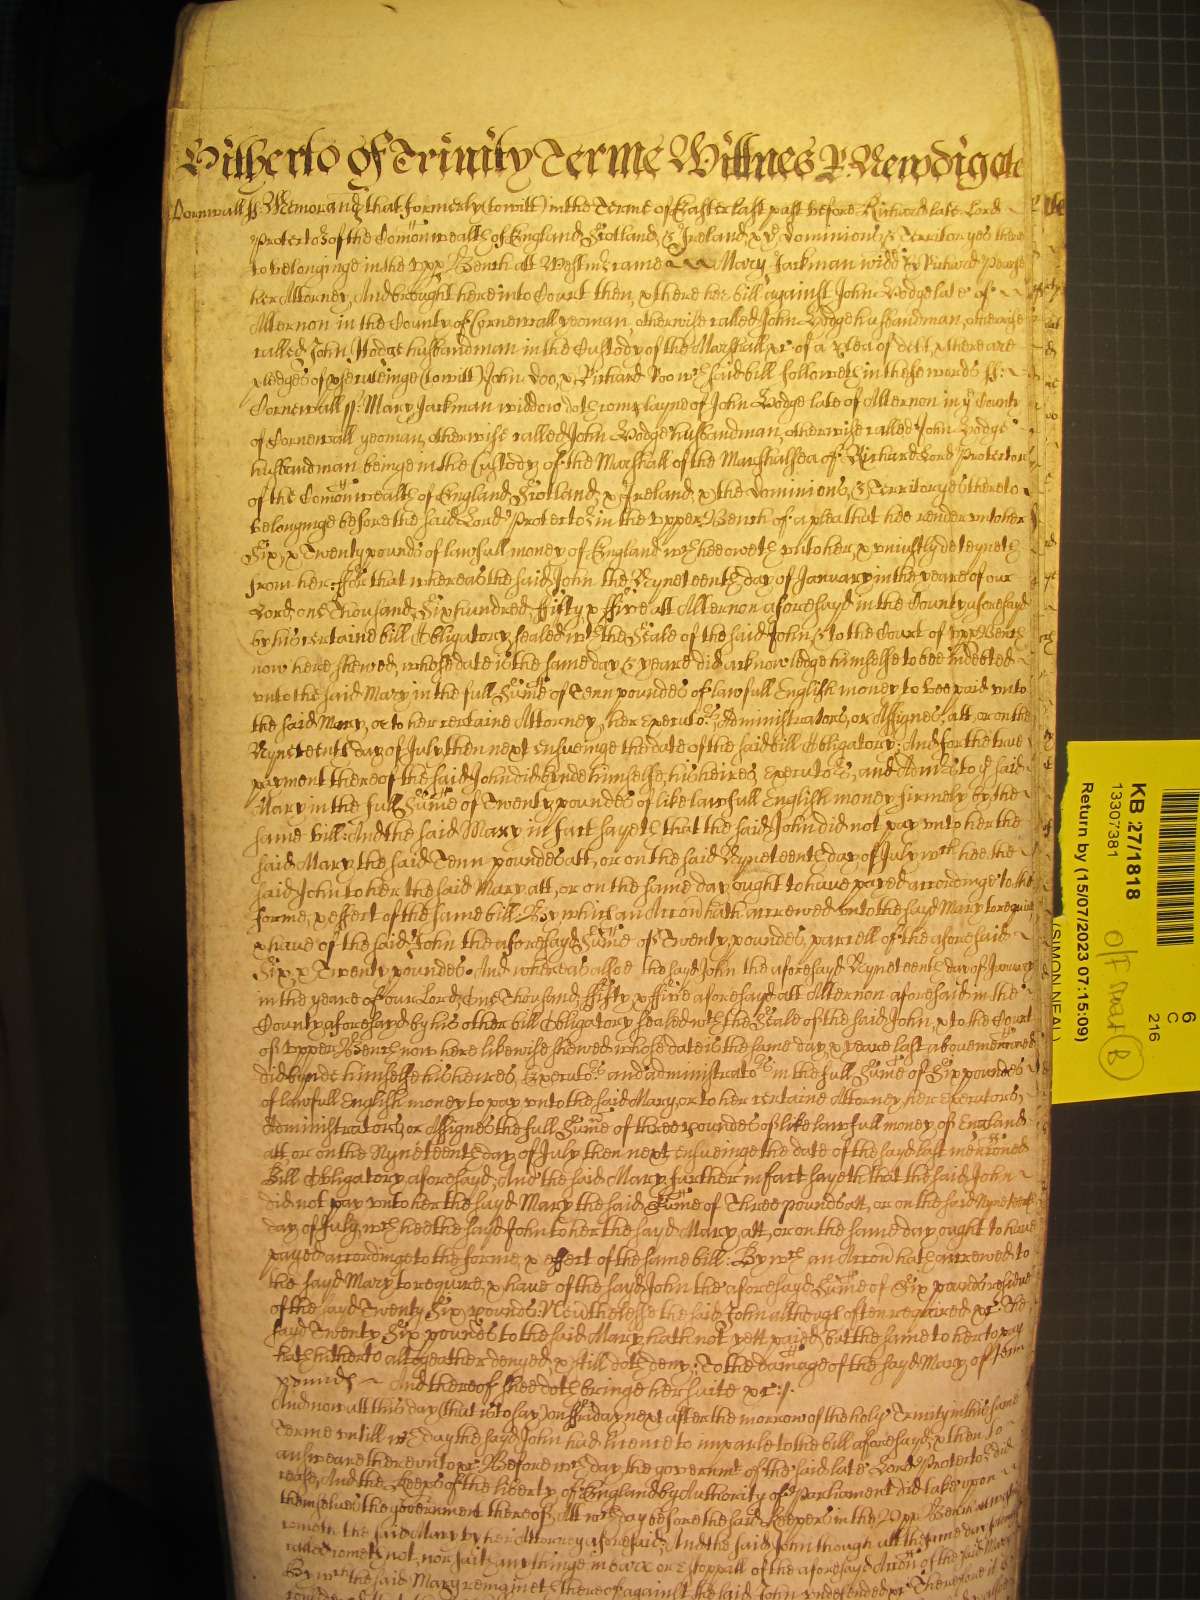 Hitherto of Trinity Terme Wittnes R: Newdigate
Cornwall ss: Memorand that formerly (to witt) in the Terme of Easter last past before Richard late Lord
Protector of the Comonwealth of England, Scotland, & Ireland, & ye dominions, & Territoryes there
to belonginge in the vpp Bench att Westmr came Mary Jackman widd by Richard Pearse
her Attorney, And brought here into Court then, & there her bill against John Hodge late of
Alternon in the County of Cornewall yeoman, otherwise called John Hodge husbandman, otherwise
called John Hodge husbandman in the Custody of the Marshall &c of a plea of dett, & there are
pledges of prsecuteinge (to witt) John doo, & Richard Roo wch said bill followeth in these words ss:
Cornewall ss: Mary Jackman widdow doth complayne of John Hodge late of Alternon in ye County
of Cornewall yeoman, otherwise called John Hodge husbandman, otherwise called John Hodge
husbandman beinge in the Custody of the Marshall of the Marshalsea of Richard Lord Protector
of the Comonwealth of England, Scotland, & Ireland, & the dominions, & Territoryes thereto
belonginge before the said Lord Protector in the vpper Bench of a plea that hee render vnto her
Six, & Twenty pounds of lawfull money of England wch hee oweth vnto her, & vniustly deteyneth
from her: ffor that whereas the said John the Nyneteenth day of January in the yeare of our
Lord, one Thousand, Six hundred, ffifty, & ffive att Alternon aforesayd in the County aforesayd
by his certaine bill Obligatory, sealed wth the Seale of the said John, & to the Court of vpp Bench
now here shewed, whose date is the same day, & yeare did acknowledge himselfe to bee indebted
vnto the said Mary in the full Sume of Tenn poundes of lawfull English money to bee paid vnto
the said Mary, or to her certaine Attorney, her Executors, Administrators, or Assignes, att, or on the
Nyneteenth day of July then next ensueinge the date of the said bill Obligatory: And for the true
payment thereof the said John did bynde himselfe, his heires, Executors, and Admrs to ye said
Mary in the full Sume of Twenty poundes of like lawfull English money firmely by the
same bill: And the said Mary in fact sayeth that the said John did not pay vnto her the
said Mary the said Tenn poundes att, or on the said Nyneteenth day of July wch hee the
said John to her the said Mary att, or on the same day ought to have payed accordinge to the
forme, & effect of the same bill: By which an Accon hath accrewed vnto the sayd Mary to require
& have of the said John the aforesayd Sume of Twenty poundes, parcell of the aforesaid
Six, & Twenty poundes. And whereas allsoe the sayd John the aforesayd Nyneteenth day of January
in the yeare of our Lord, One Thousand, ffifty, & ffive aforesayd att Alternon aforesaid in the
County aforesayd by his other bill Obligatory sealed wth the Seale of the said John, & to the Court
of vpper Bench now here likewise shewed whose date is the same day, & yeare last abovementioned
did bynde himselfe his heires, Executors and administrators in the full Sume of Six poundes
of lawfull English money to pay vnto the said Mary, or to her certaine Attorney, her Executors,
Administrators, or Assignes the full Sume of three poundes of like lawfull money of England
att, or on the Nyneteenth day of July then next ensueinge the date of the sayd last mencioned
Bill Obligatory aforesayd, And the said Mary further in fact sayeth that the said John
did not pay vnto her the sayd Mary the said Sume of Three pounds att, or on the said Nyneteenth
day of July, wch hee the sayd John to her the sayd Mary, att, or on the same day ought to have
payed accordinge to the forme, & effect of the same bill: By wch an Accon hath accrewed to
the sayd Mary to require, & have of the sayd John the aforesayd Sume of Six pounds residue
of the sayd Twenty Six pounds: Neuthelesse the said John although often required &c: The
sayd Twenty Six poundes to the said Mary hath not yett paied, but the same to her to pay
hath hitherto altogeather denyed & still doth deny: To the damage of the sayd Mary of Tenn
pounds And thereof shee doth bringe her suite &c:
And now att this day (that is to say) on ffriday next after the morrow of the holy Trinity in this same
Terme vntill wch day the sayd John had licence to imparle to the bill aforesayd, & then to
answeare therevnto &c: Before wch day the governmt of the said late Lord Protector did
cease, And the Keeprs of the liberty of England by Authority of Parliament did take vpon
themselves the government thereof, Att wch day before the said Keepers in the vpp Bench att
cometh the said Mary by her Attorney aforesaid; And the said John though att the same day
called cometh not, nor saith any thinge in barr or Estoppall of the aforesayd Accon of the said Mary
By wch the said Mary remaineth thereof against the said John vndefended &c: Therefore it is
KB 27/1818
13307381
Return by (15/07/2023 07:15:09)
(SIMON NEAL)
6
C
216
B